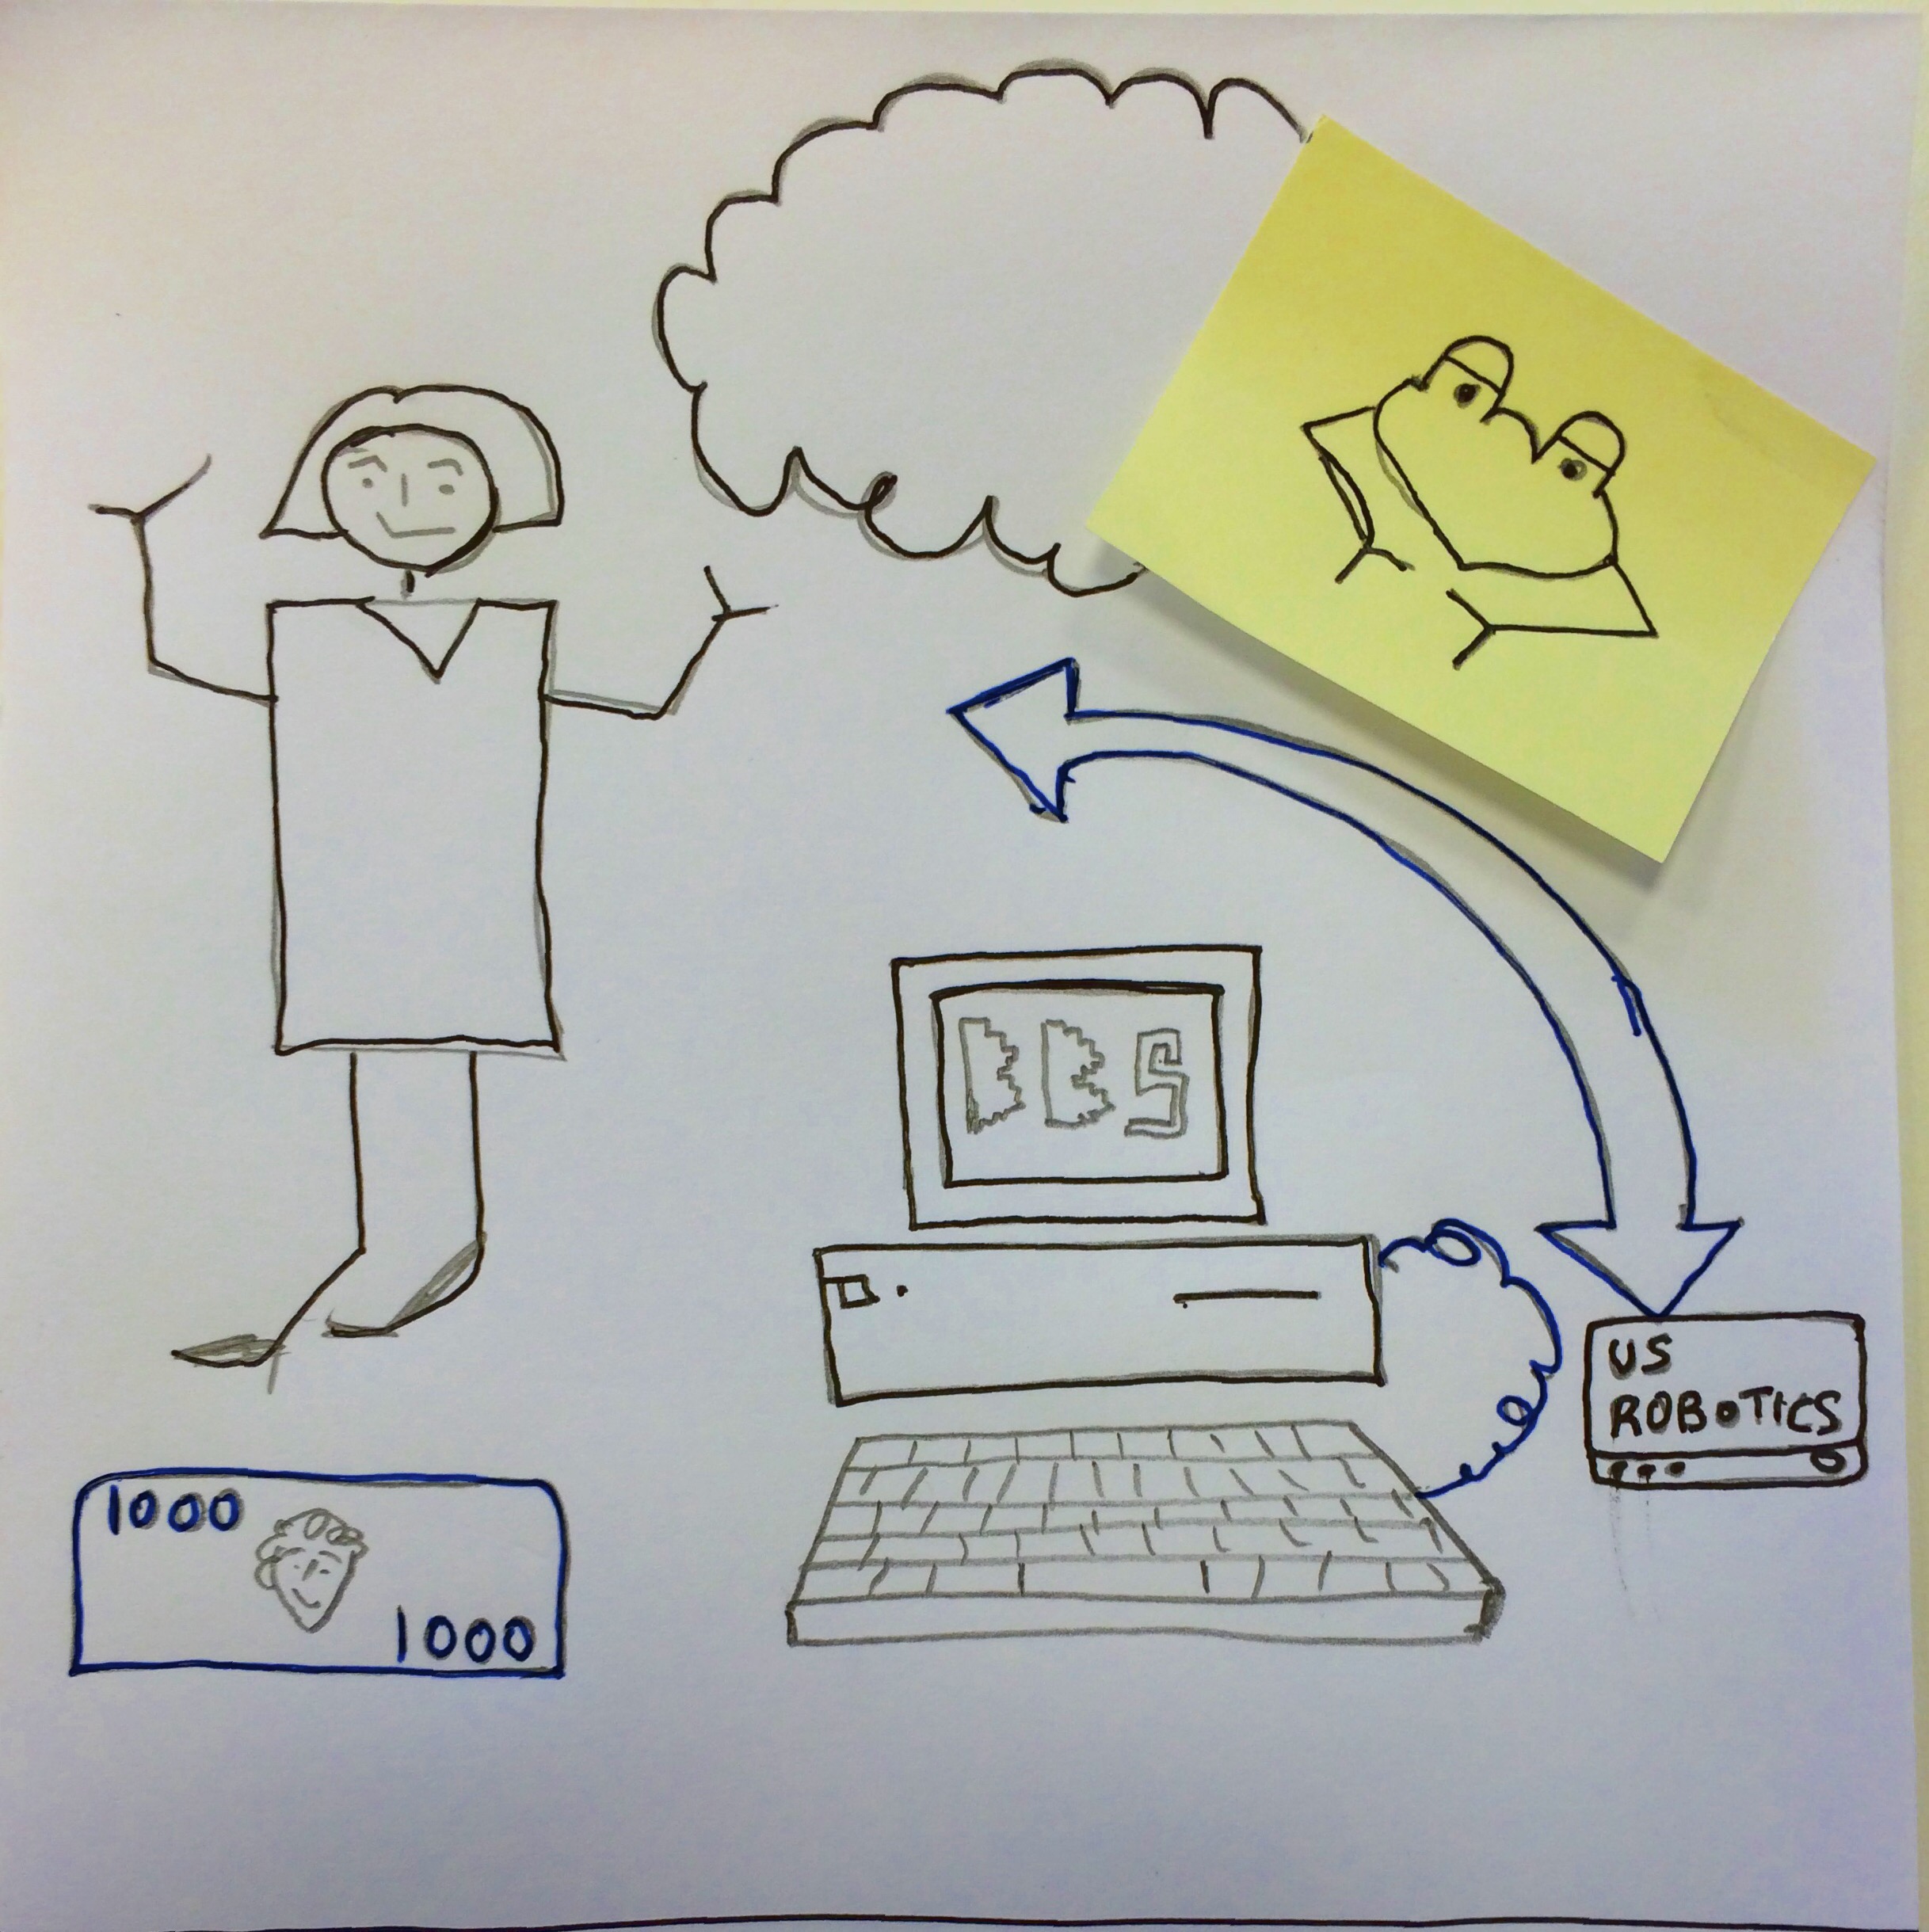 BBS
US
ROBOTICS
1000
1000